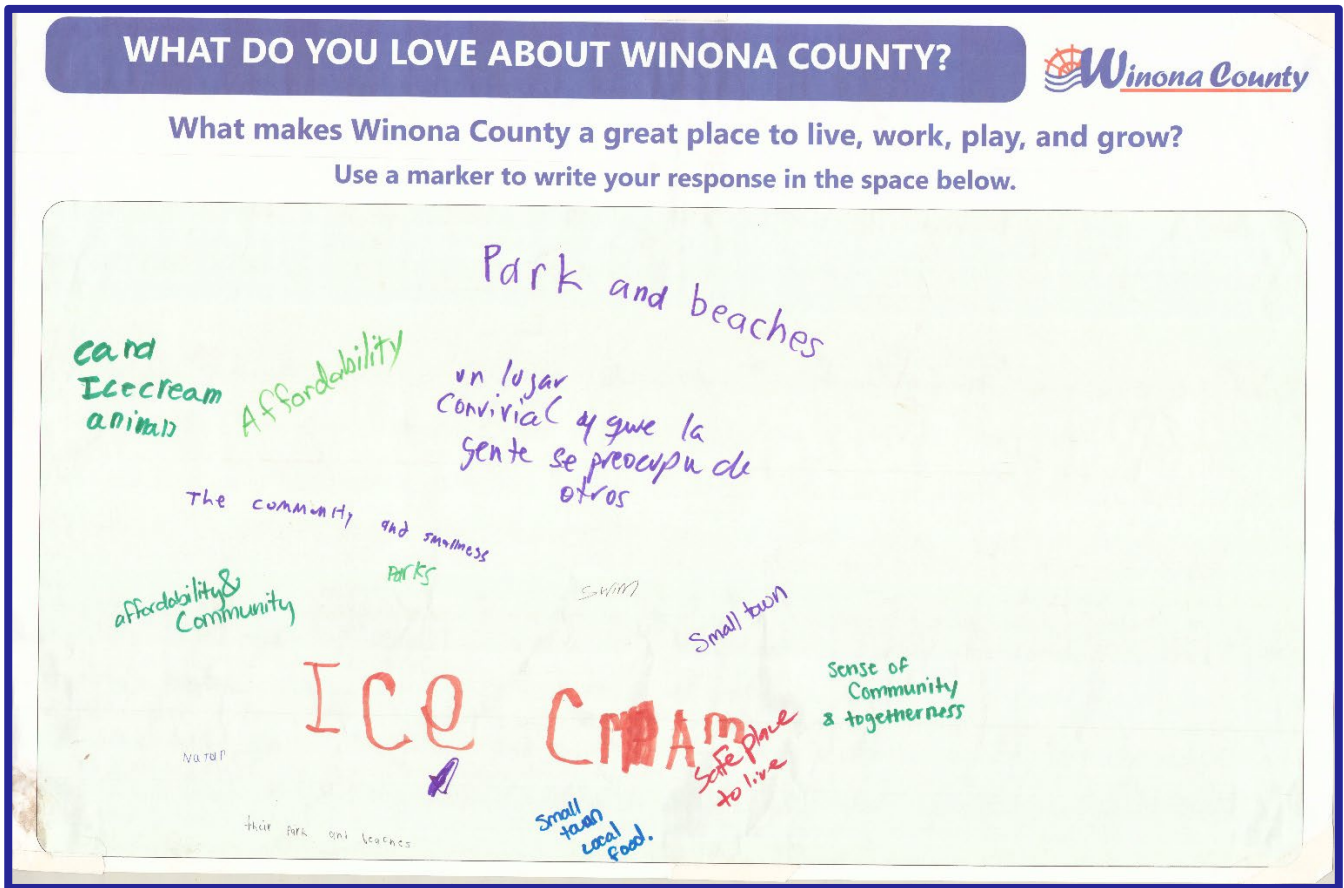 WHAT DO YOU LOVE ABOUT WINONA COUNTY?
Winona County
What makes Winona County a great place to live, work, play, and grow?
Use a marker to write your response in the space below.
Park and beaches
cand
Icecream
animals
Affordability
un lugar
convivial y que la
gente se preocupa de
otros
The community and smallness
Parks
swim
affordability &
Community
Small town
ICe
Sense of
Community
& togetherness
Safe place
to live
Natur
Small
town
Local
food.
their park and beaches